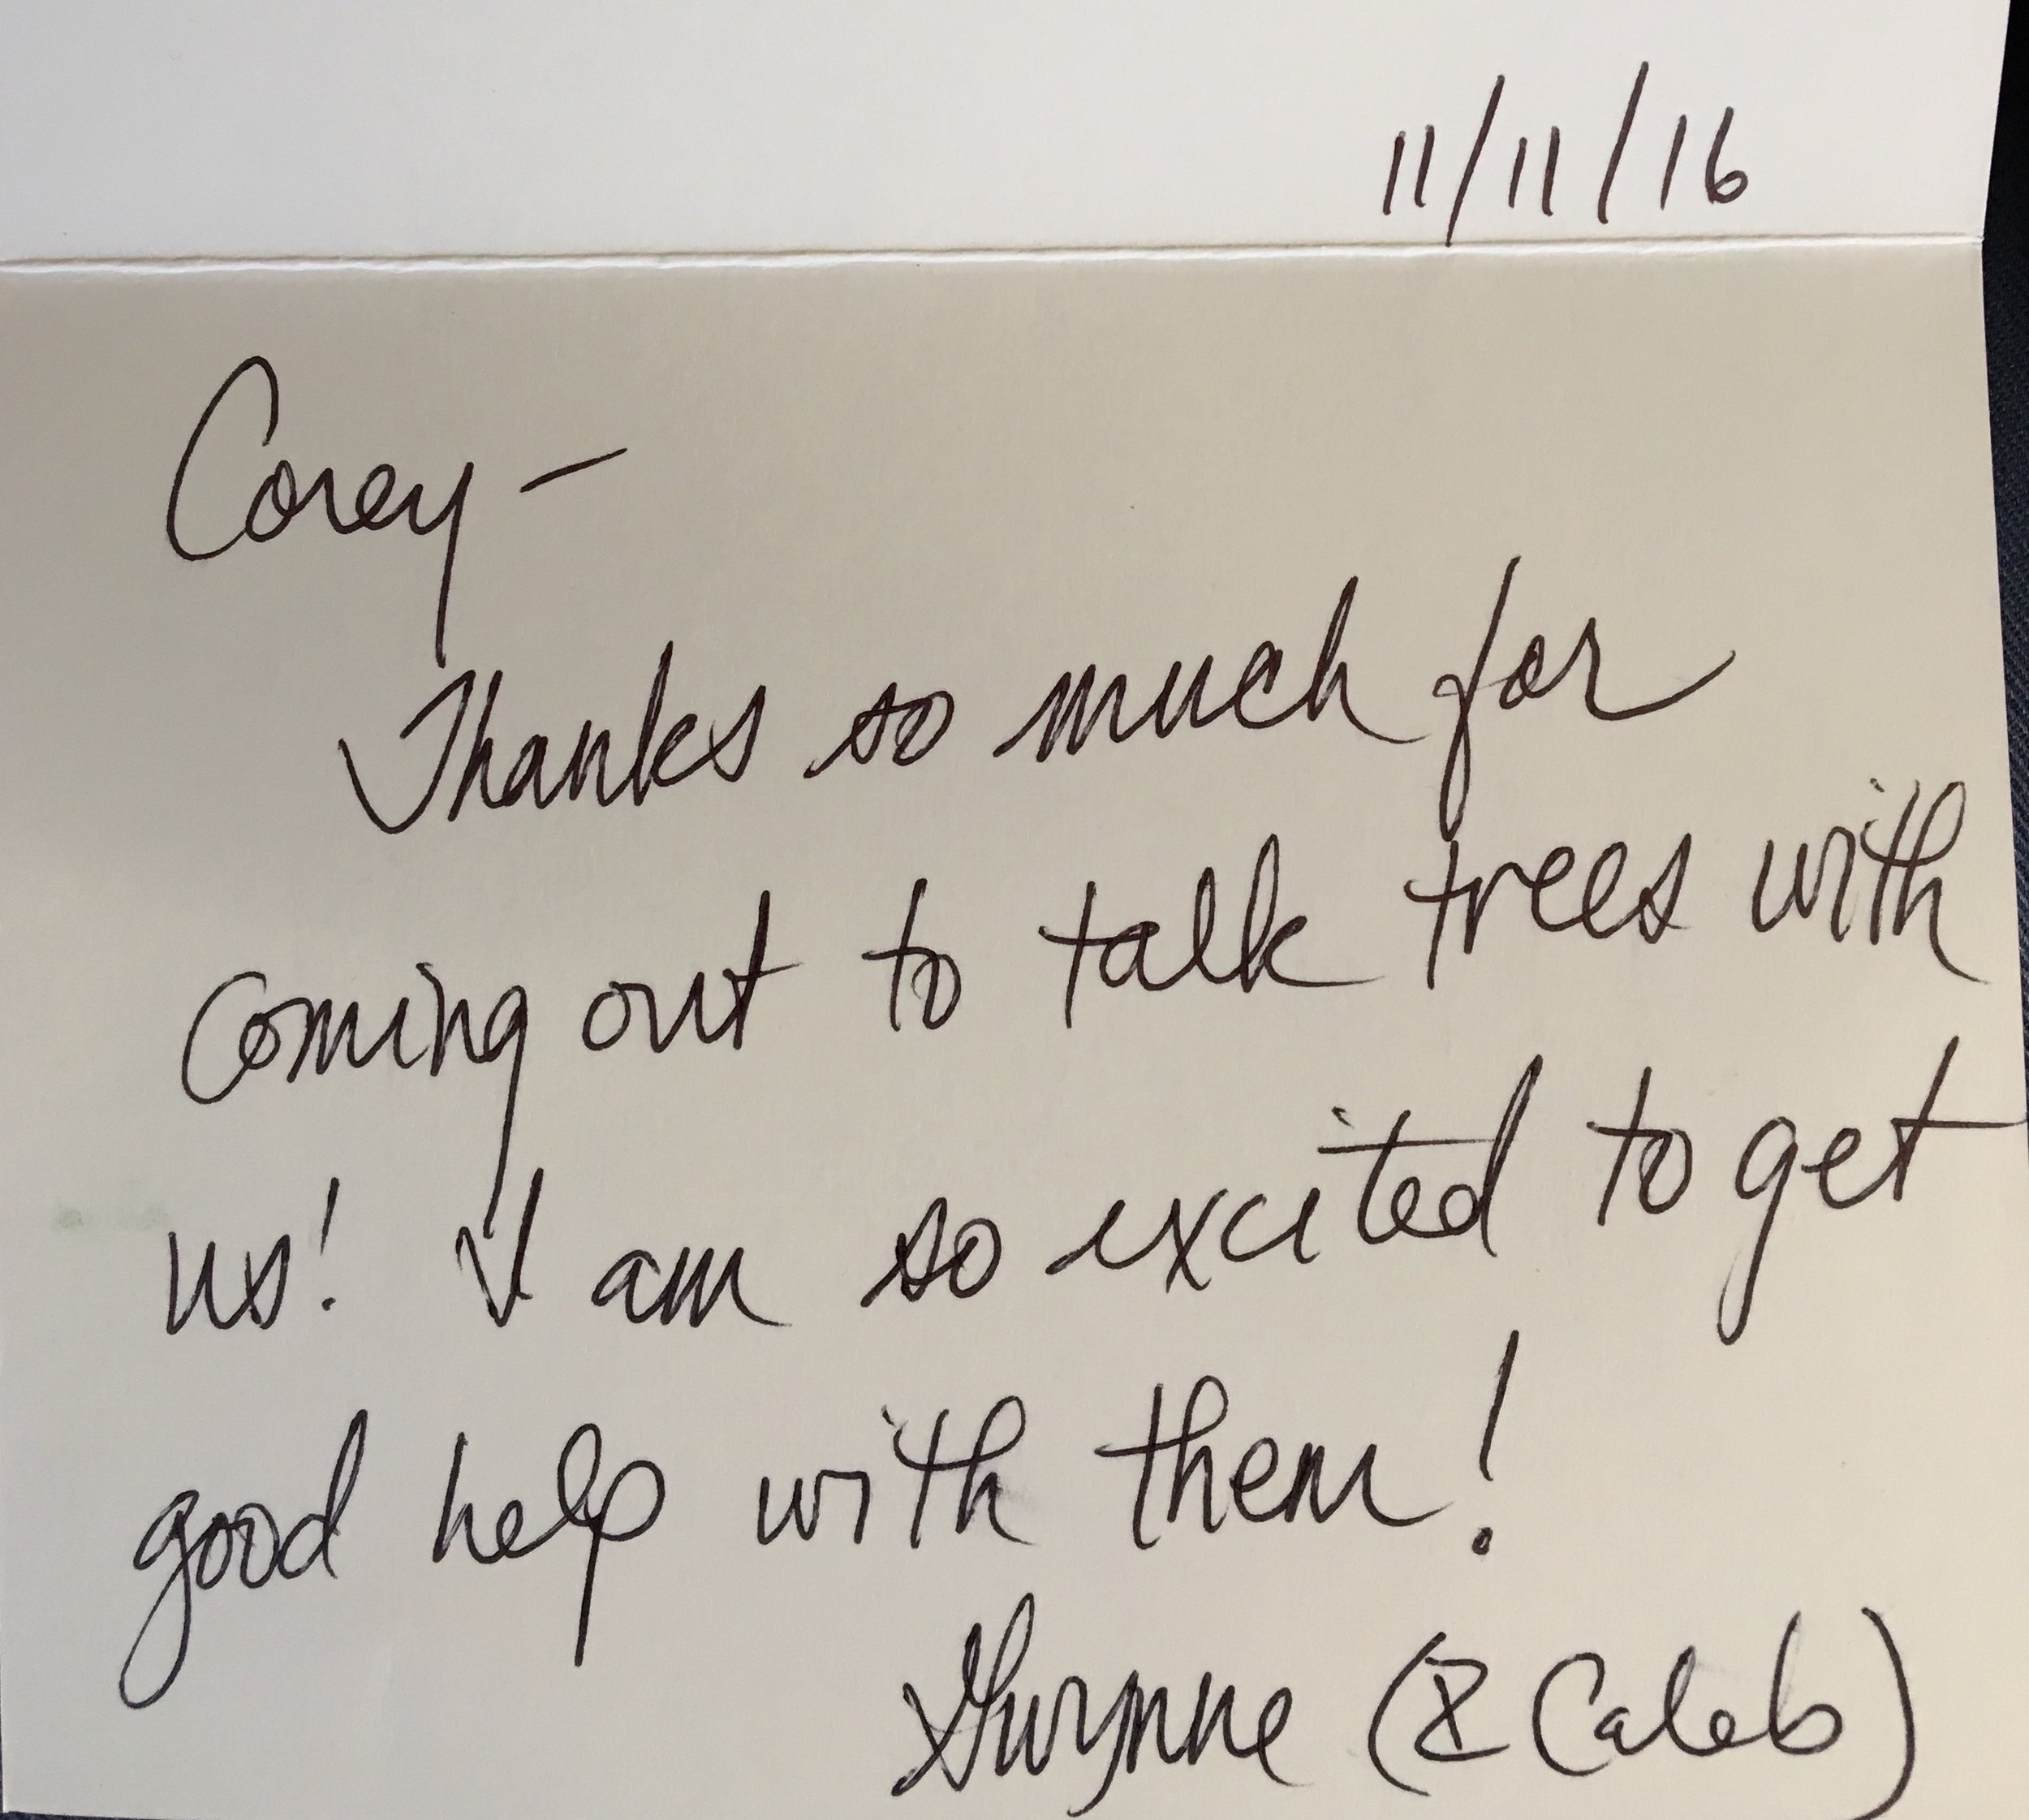 11/11/16
Corey -
Thanks so much for
coming out to talk trees with
us! I am so excited to get
good help with them!
Gwynne (& Caleb)